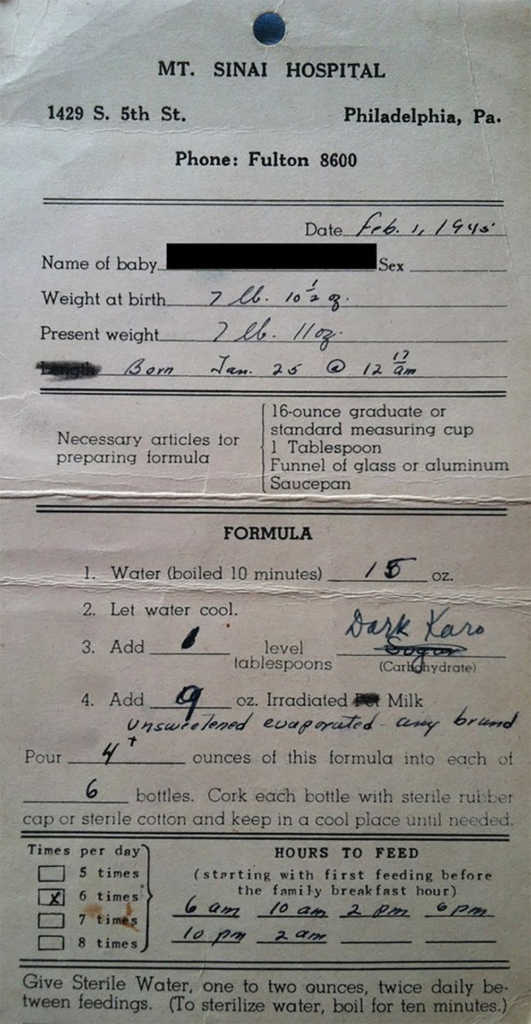 MT. SINAI HOSPITAL
1429 S. 5th St. Philadelphia, Pa.
Phone: Fulton 8600
Date Feb. 1, 1945
Name of baby Sex
Weight at birth 7 lb. 10 1/2 oz.
Present weight 7 lb. 11 oz.
Length Born Jan. 25 @ 12 17 am
Necessary articles for preparing formula
16-ounce graduate or
standard measuring cup
1 Tablespoon
Funnel of glass or aluminum
Saucepan
FORMULA
1. Water (boiled 10 minutes) 15 oz.
2. Let water cool.
Dark Karo
3. Add 1 level tablespoons Sugar
(Carbohydrate)
4. Add 9 oz. Irradiated Milk
unsweetened evaporated - any brand
Pour 4+ ounces of this formula into each of
6 bottles. Cork each bottle with sterile rubber
cap or sterile cotton and keep in a cool place until needed.
Times per day
5 times
x 6 times
7 times
8 times
HOURS TO FEED
(starting with first feeding before
the family breakfast hour)
6 am 10 am 2 pm 6 pm
10 pm 2 am
Give Sterile Water, one to two ounces, twice daily be-
tween feedings. (To sterilize water, boil for ten minutes.)